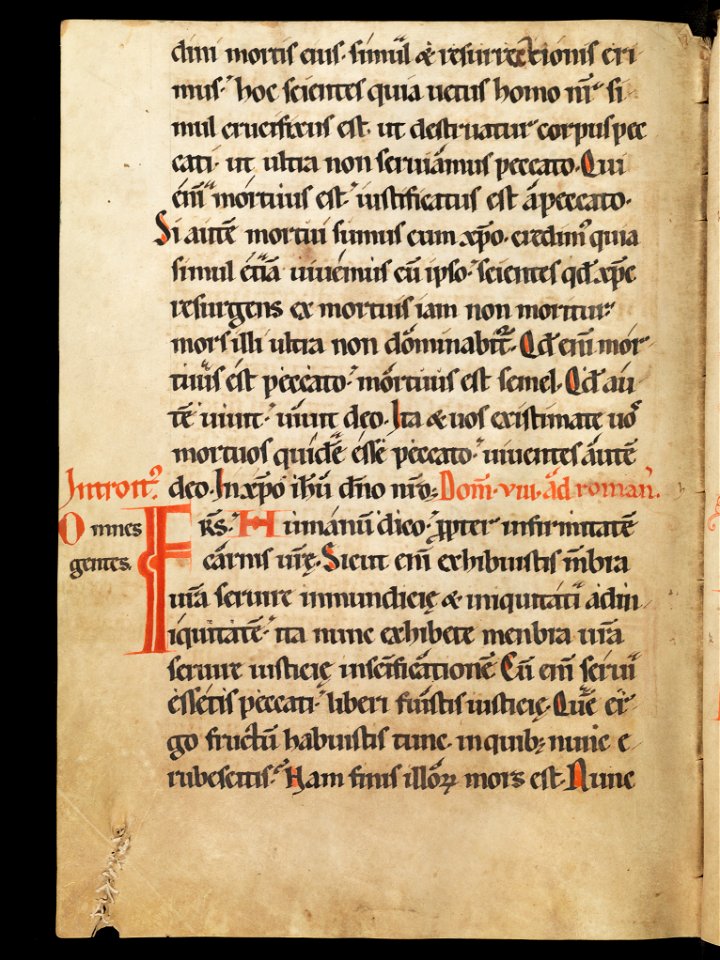 dini mortis eius. simul & resurrectionis eri
mus. hoc scientes quia uetus homo nr̄ si
mul crucifixus est. ut destruatur corpus pec
cati. ut ultra non seruiamus peccato. Qui
eni̅ mortuus est. iustificatus est a peccato.
Si aute̅ mortui sumus cum xp̅o. credim᷒ quia
simul etia̅ uiuemus cu̅ ipso. scientes qd̅ xp̅c
resurgens ex mortuis iam non moritur.
mors illi ultra non dominabit᷑. Qd̅ eni̅ mor
tuus est peccato. mortuus est semel. Qd̅ au
te̅ uiuit. uiuit deo. Ita & uos existimate uos
mortuos quide̅ esse peccato. uiuentes aute̅
deo. In xp̅o ih̅u dn̅o nr̅o. Dom̅. viii. ad roman̅.
Introit᷒.
Omnes
gentes.
FRS̅. Humanu̅ dico. ꝓpter infirmitate̅
carnis ur̅ę. Sicut eni̅ exhibuistis m̅bra
ur̅a seruire inmundicię & iniquitati ad in
iquitate̅. ita nunc exhibete menbra ur̅a
seruire iusticię in sc̅ificatione̅ Cu̅ eni̅ serui
essetis peccati. liberi fuistis iusticię. Que̅ er
go fructu̅ habuistis tunc. in quib; nunc e
rubescitis. Nam finis illoꝝ mors est. Nunc